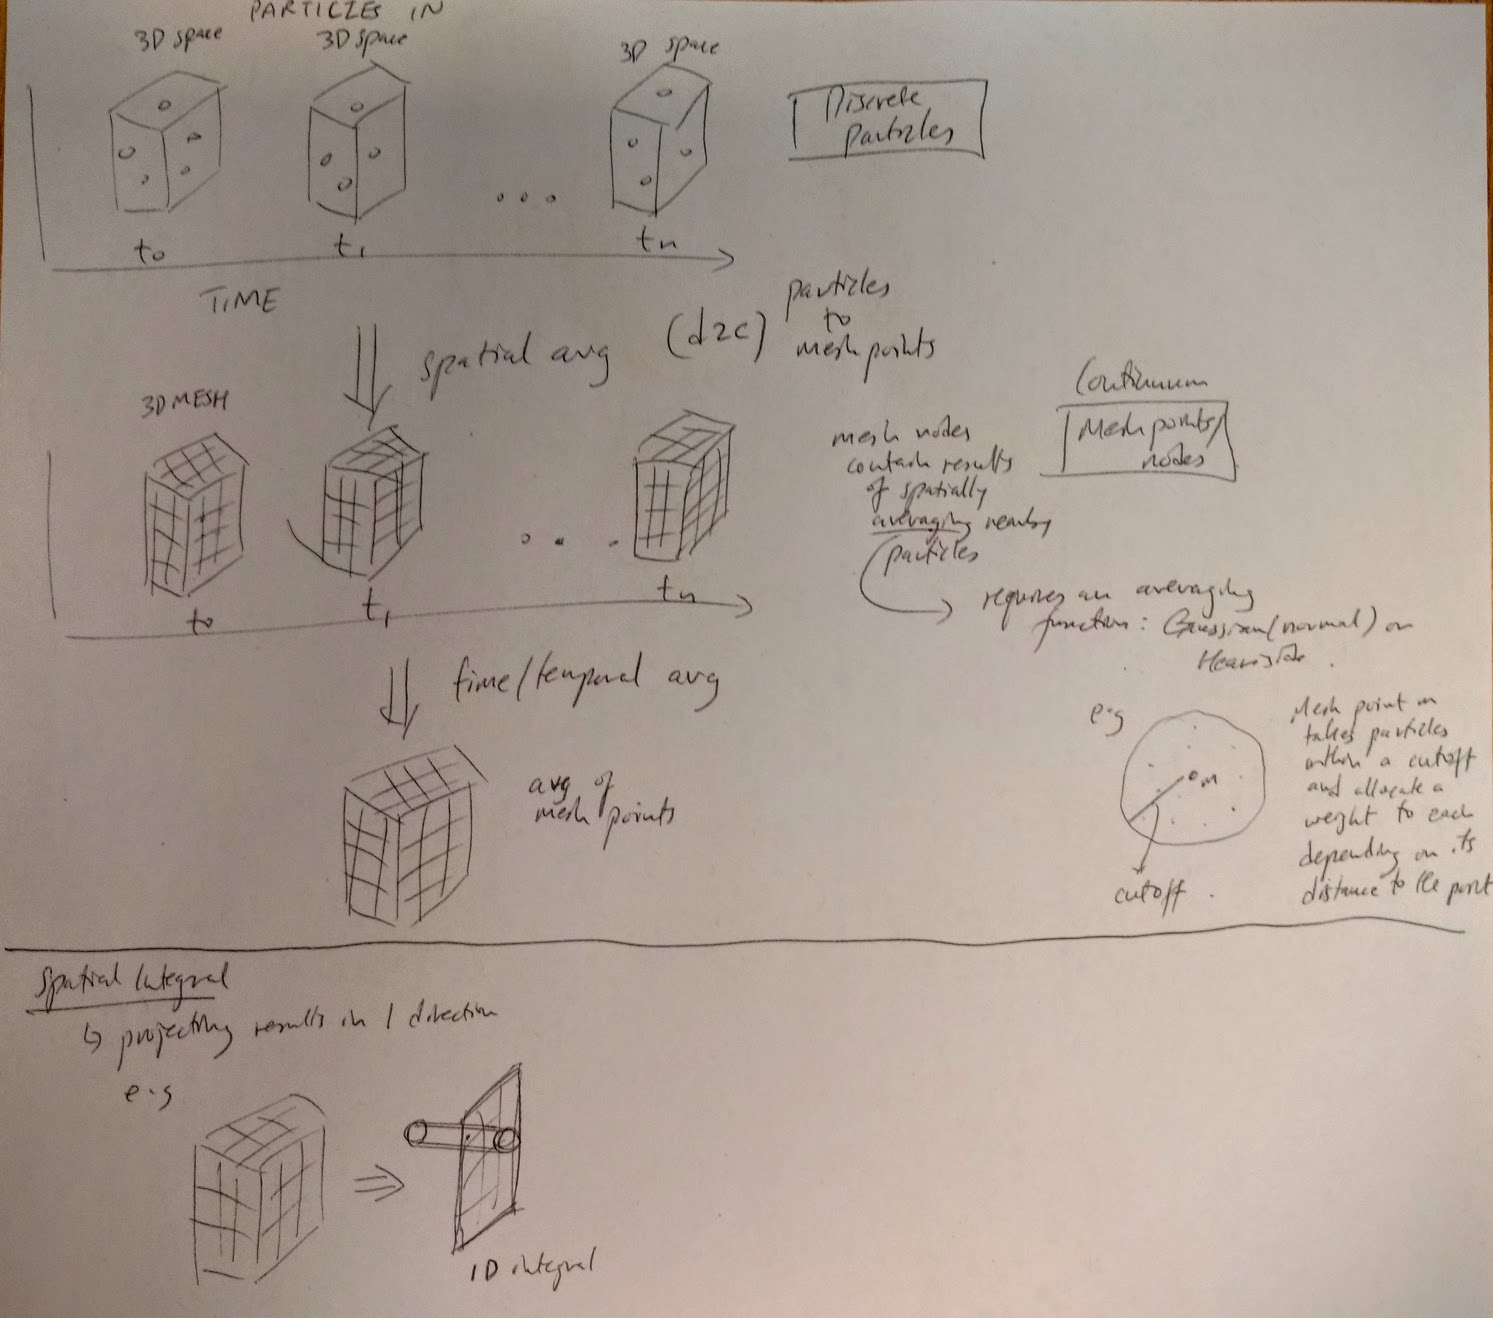 PARTICLES IN
3D space
3D space
3D space
Discrete
particles
t0
t1
...
tn
TIME
spatial avg
(d2c)
particles
to
mesh points
3D MESH
t0
t1
...
tn
mesh nodes
contain results
of spatially
averaging nearby
particles
Continuum
Mesh points/
nodes
requires an averaging
function: Gaussian (normal) or
Heaviside.
time/temporal avg
avg of
mesh points
e.g
m
cutoff.
Mesh point m
takes particles
within a cutoff
and allocate a
weight to each
depending on its
distance to the point
Spatial Integral
↳ projecting results in 1 direction
e.g
1D integral